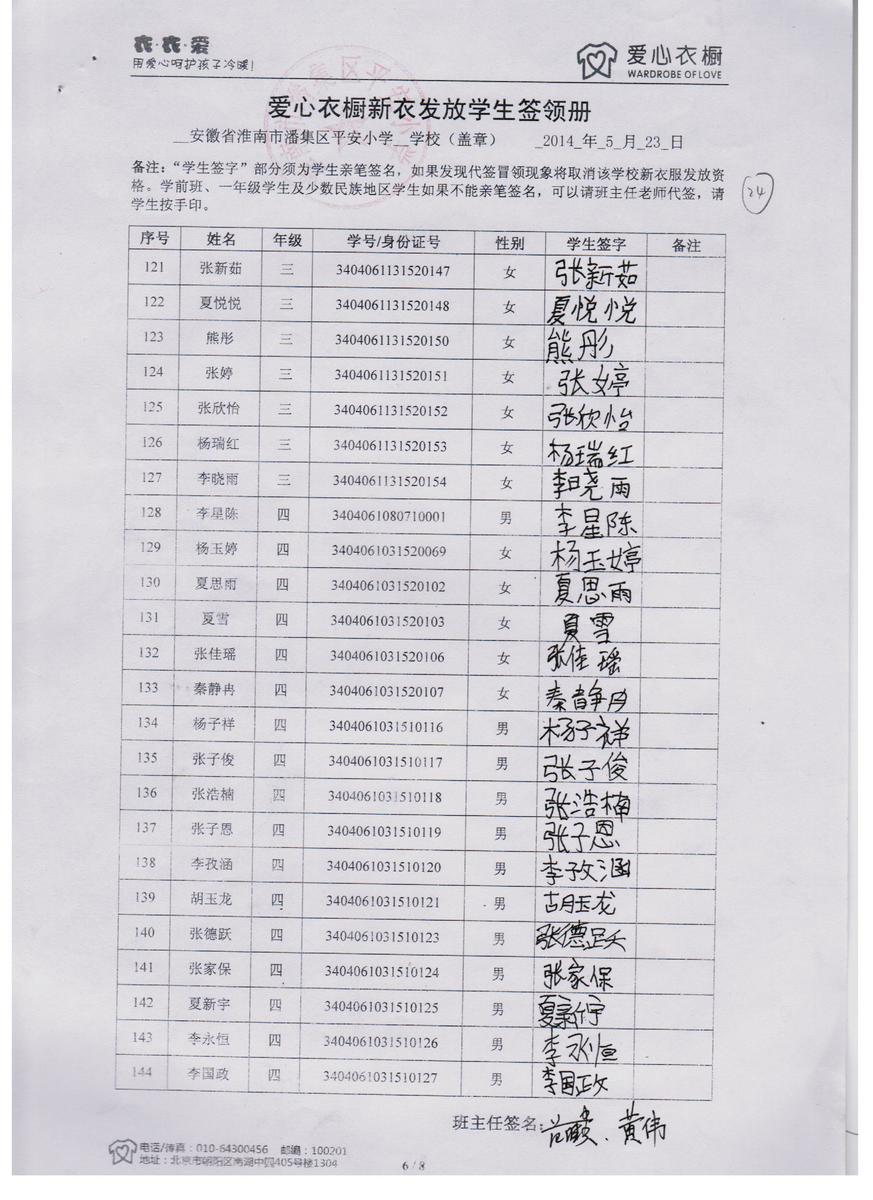 衣·衣·爱
用爱心呵护孩子冷暖!
爱心衣橱
WARDROBE OF LOVE
爱心衣橱新衣发放学生签领册
__安徽省淮南市潘集区平安小学__学校（盖章） _2014_年_5_月_23_日
备注：“学生签字”部分须为学生亲笔签名，如果发现代签冒领现象将取消该学校新衣服发放资
格。学前班、一年级学生及少数民族地区学生如果不能亲笔签名，可以请班主任老师代签，请
学生按手印。
24
序号 姓名 年级 学号/身份证号 性别 学生签字 备注
121 张新茹 三 3404061131520147 女 张新茹
122 夏悦悦 三 3404061131520148 女 夏悦悦
123 熊彤 三 3404061131520150 女 熊彤
124 张婷 三 3404061131520151 女 张婷
125 张欣怡 三 3404061131520152 女 张欣怡
126 杨瑞红 三 3404061131520153 女 杨瑞红
127 李晓雨 三 3404061131520154 女 李晓雨
128 李星陈 四 3404061080710001 男 李星陈
129 杨玉婷 四 3404061031520069 女 杨玉婷
130 夏思雨 四 3404061031520102 女 夏思雨
131 夏雪 四 3404061031520103 女 夏雪
132 张佳瑶 四 3404061031520106 女 张佳瑶
133 秦静冉 四 3404061031520107 女 秦静冉
134 杨子祥 四 3404061031510116 男 杨子祥
135 张子俊 四 3404061031510117 男 张子俊
136 张浩楠 四 3404061031510118 男 张浩楠
137 张子恩 四 3404061031510119 男 张子恩
138 李孜涵 四 3404061031510120 男 李孜涵
139 胡玉龙 四 3404061031510121 男 胡玉龙
140 张德跃 四 3404061031510123 男 张德跃
141 张家保 四 3404061031510124 男 张家保
142 夏新宇 四 3404061031510125 男 夏新宇
143 李永恒 四 3404061031510126 男 李永恒
144 李国政 四 3404061031510127 男 李国政
班主任签名: 、黄伟
电话/传真：010-64300456 邮编：100201
地址：北京市朝阳区南湖中园405号楼1304
6 / 8